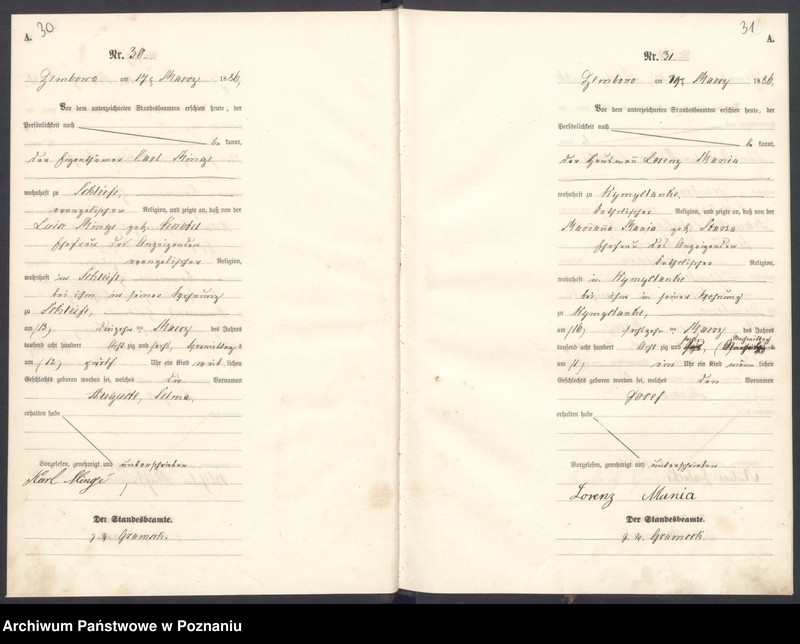 30
A.
Nr. 30.
am 17ten Maerz 1886,
Vor dem unterzeichneten Standesbeamten erschien heute, der
Persönlichkeit nach
be kannt,
der Eigenthümer Carl
wohnhaft zu Schliefe,
evangelischer Religion, und zeigte an, daß von der
geb.
Ehefrau des Anzeigenden
evangelischer Religion,
wohnhaft in Schliefe,
bei ihm in seiner Wohnung
zu Schliefe,
am (13) dreizehn ten Maerz des Jahres
tausend acht hundert Acht zig und sechs, Vormittags
um (12) zwölf Uhr ein Kind weib lichen
Geschlechts geboren worden sei, welches die Vornamen
Auguste, Selma,
erhalten habe
Vorgelesen, genehmigt und unterschrieben
Karl Minge
Der Standesbeamte.
31
A.
Nr. 31.
am Maerz 1886,
Vor dem unterzeichneten Standesbeamten erschien heute, der
Persönlichkeit nach
be kannt,
der Lorenz Mania
wohnhaft zu
katholischer Religion, und zeigte an, daß von der
Marianna Mania geb.
Ehefrau des Anzeigenden
katholischer Religion,
wohnhaft in
bei ihm in seiner Wohnung
zu
am (16) sechszehn ten Maerz des Jahres
tausend acht hundert Acht zig und sechs, Nachmittag
um (1) ein Uhr ein Kind männ lichen
Geschlechts geboren worden sei, welches den Vornamen
Josef
erhalten habe
Vorgelesen, genehmigt und unterschrieben
Lorenz Mania
Der Standesbeamte.
Archiwum Państwowe w Poznaniu